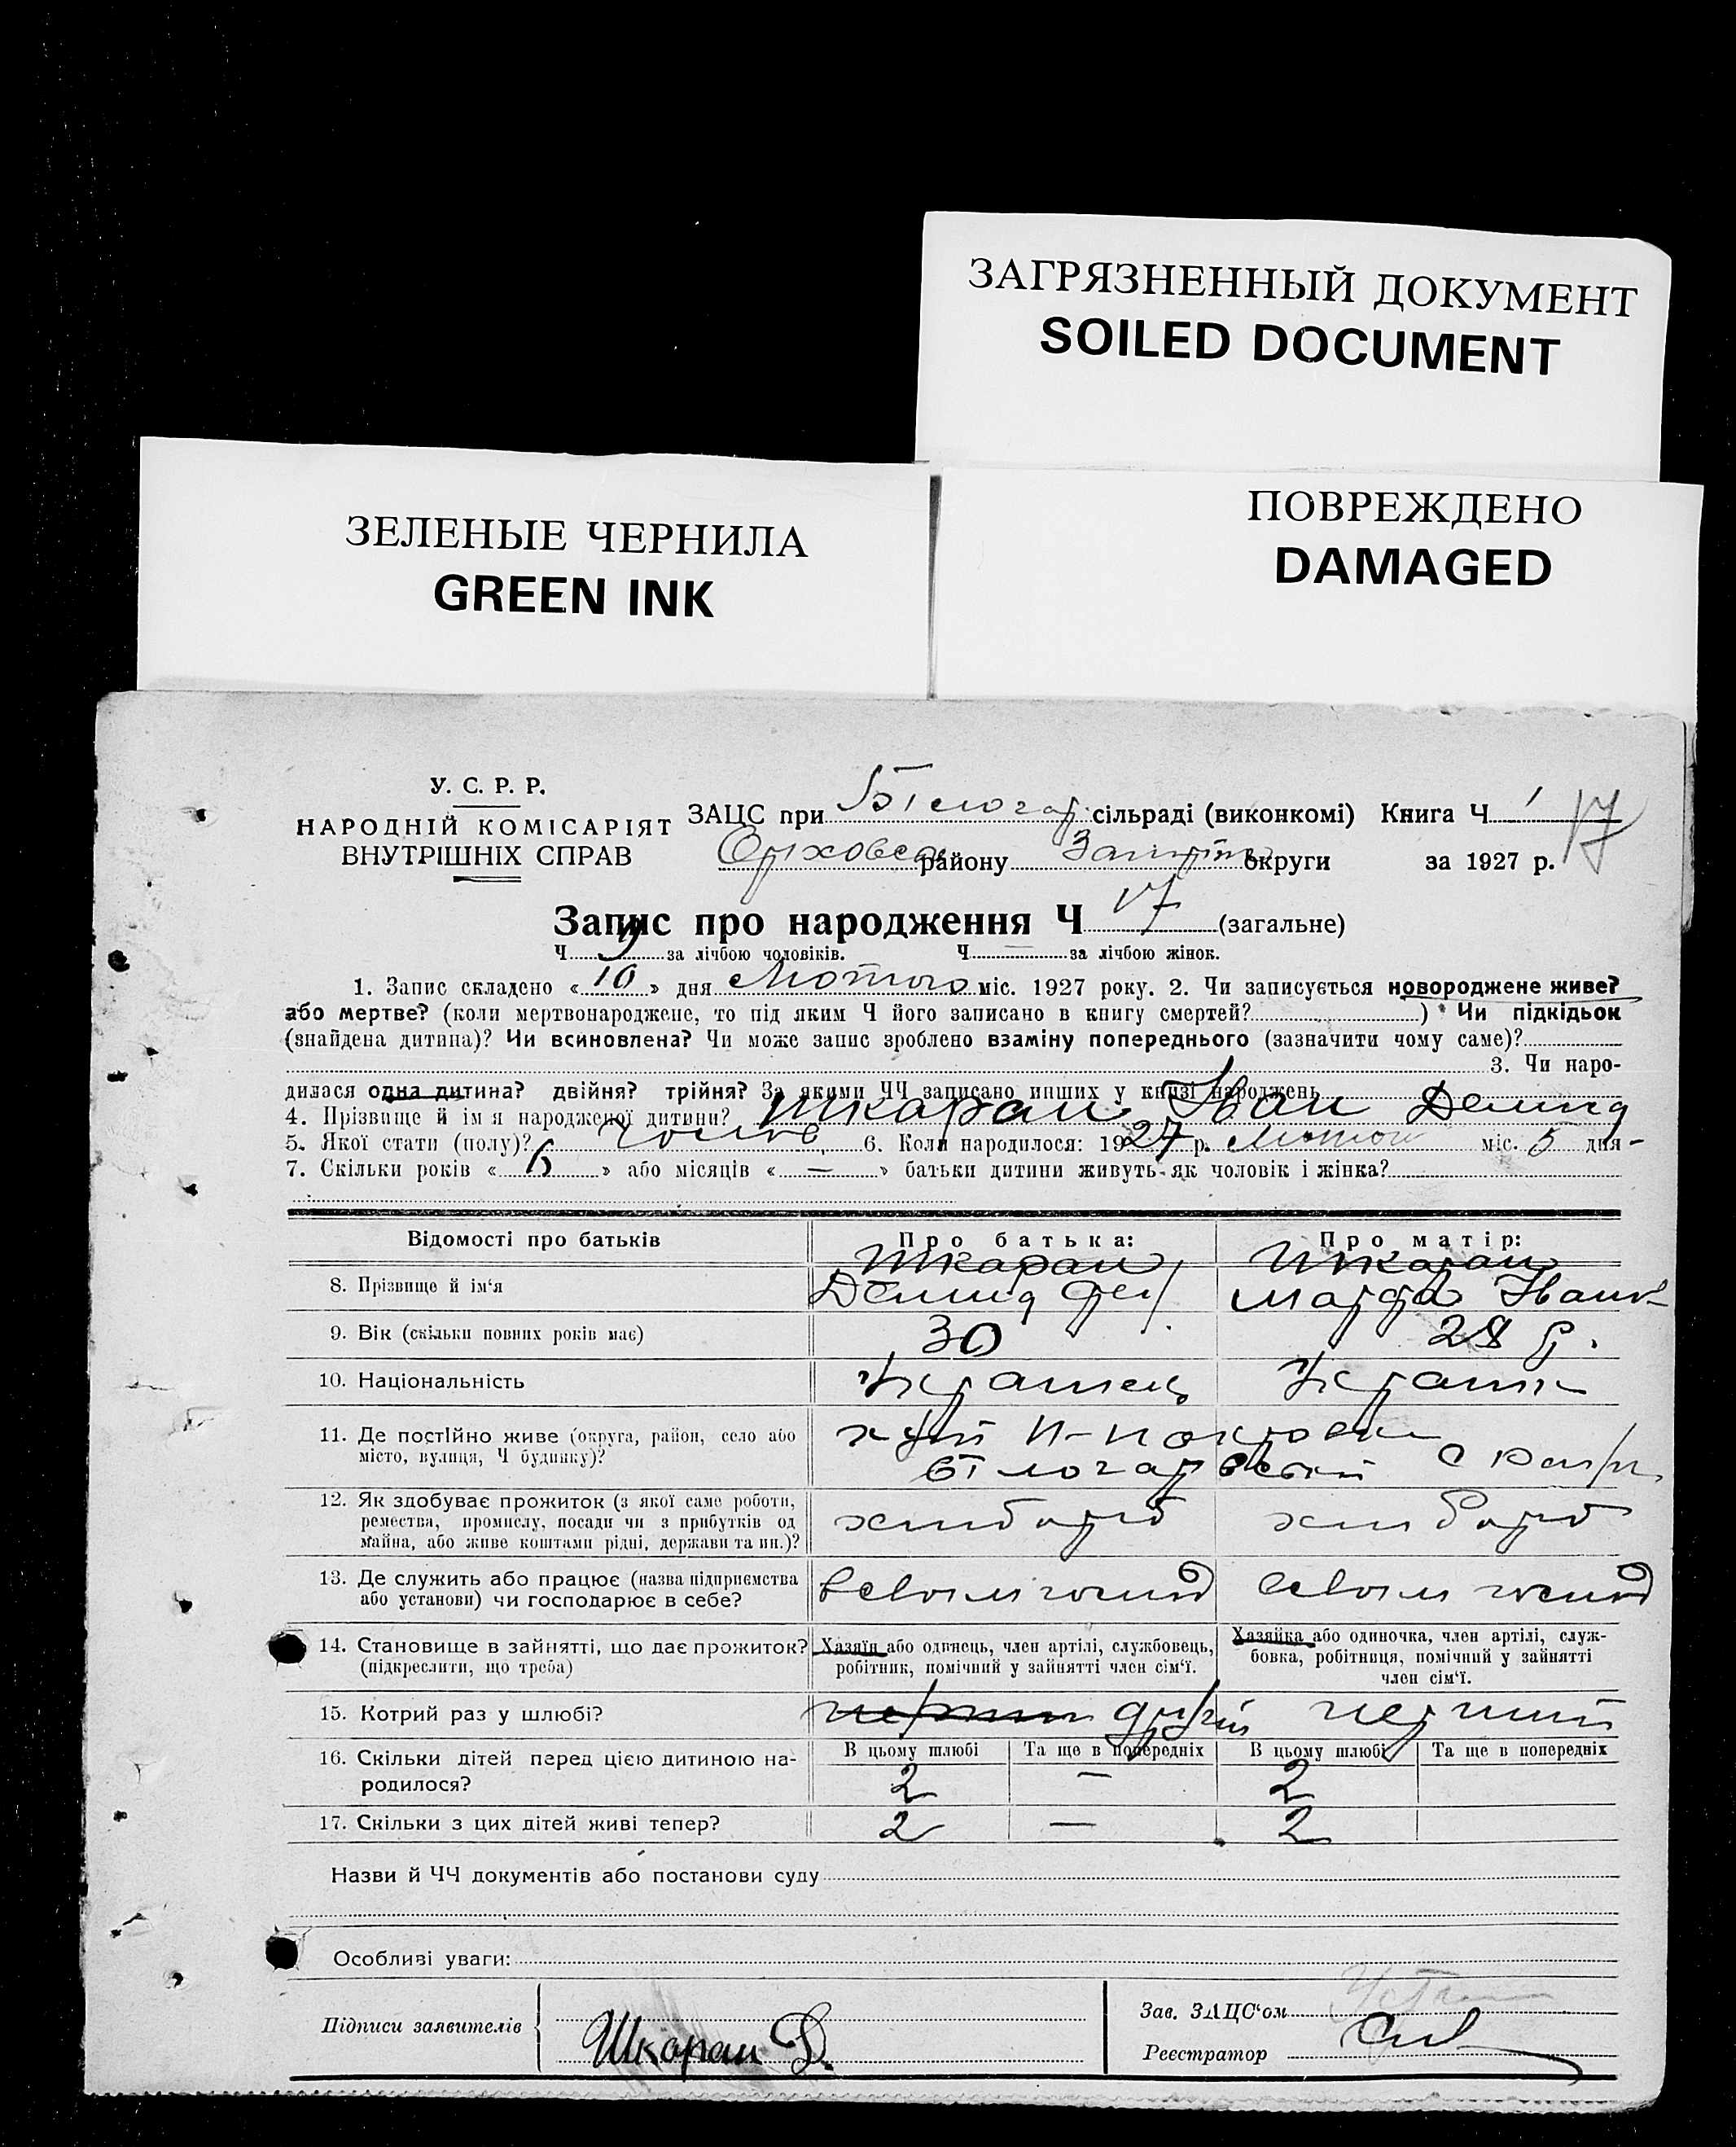 ЗАГРЯЗНЕННЫЙ ДОКУМЕНТ
SOILED DOCUMENT
ЗЕЛЕНЫЕ ЧЕРНИЛА
GREEN INK
ПОВРЕЖДЕНО
DAMAGED
У. С. Р. Р.
НАРОДНІЙ КОМІСАРІЯТ
ВНУТРІШНІХ СПРАВ
ЗАЦС при Білогар сільраді (виконкомі) Книга Ч 1 17
району округи за 1927 р.
Запис про народження Ч 17 (загальне)
Ч 9 за лічбою чоловіків. Ч — за лічбою жінок.
1. Запис складено « 10 » дня Лютого міс. 1927 року. 2. Чи записується новороджене живе?
або мертве? (коли мертвонароджене, то під яким Ч його записано в книгу смертей? ) Чи підкідьок
(знайдена дитина)? Чи всиновлена? Чи може запис зроблено взаміну попереднього (зазначити чому саме)?
3. Чи наро-
дилася одна дитина? двійня? трійня? За якими ЧЧ записано инших у книзі народжень
4. Прізвище й ім'я народженої дитини? Шкарап Іван Демид
5. Якої стати (полу)? чолов 6. Коли народилося: 1927 р. Лютого міс. 5 дня -
7. Скільки років « 6 » або місяців « — » батьки дитини живуть як чоловік і жінка?
Відомості про батьків Про батька: Про матір:
Шкарап Шкарап
8. Прізвище й ім'я Демид Фед Марфа Іванів
9. Вік (скільки повних років має) 30 28 р.
10. Національність Українець Українк
11. Де постійно живе (округа, район, село або
місто, вулиця, Ч будинку)?
хут Н-Покровка
Білогарівській
12. Як здобуває прожиток (з якої саме роботи,
ремества, промислу, посади чи з прибутків од
майна, або живе коштами рідні, держави та ин.)?
хлібороб хлібороб
13. Де служить або працює (назва підприємства
або установи) чи господарює в себе?
в своїм господ в своїм господ
14. Становище в зайнятті, що дає прожиток?
(підкреслити, що треба)
Хазяїн або одинець, член артілі, службовець,
робітник, помічний у зайнятті член сім'ї.
Хазяйка або одиночка, член артілі, служ-
бовка, робітниця, помічний у зайнятті
член сім'ї.
15. Котрий раз у шлюбі? перший другий перший
16. Скільки дітей перед цією дитиною на-
родилося?
В цьому шлюбі Та ще в попередніх В цьому шлюбі Та ще в попередніх
2 — 2
17. Скільки з цих дітей живі тепер? 2 — 2
Назви й ЧЧ документів або постанови суду
Особливі уваги:
Підписи заявителів Шкарап Д.
Зав. ЗАЦС'ом
Реєстратор